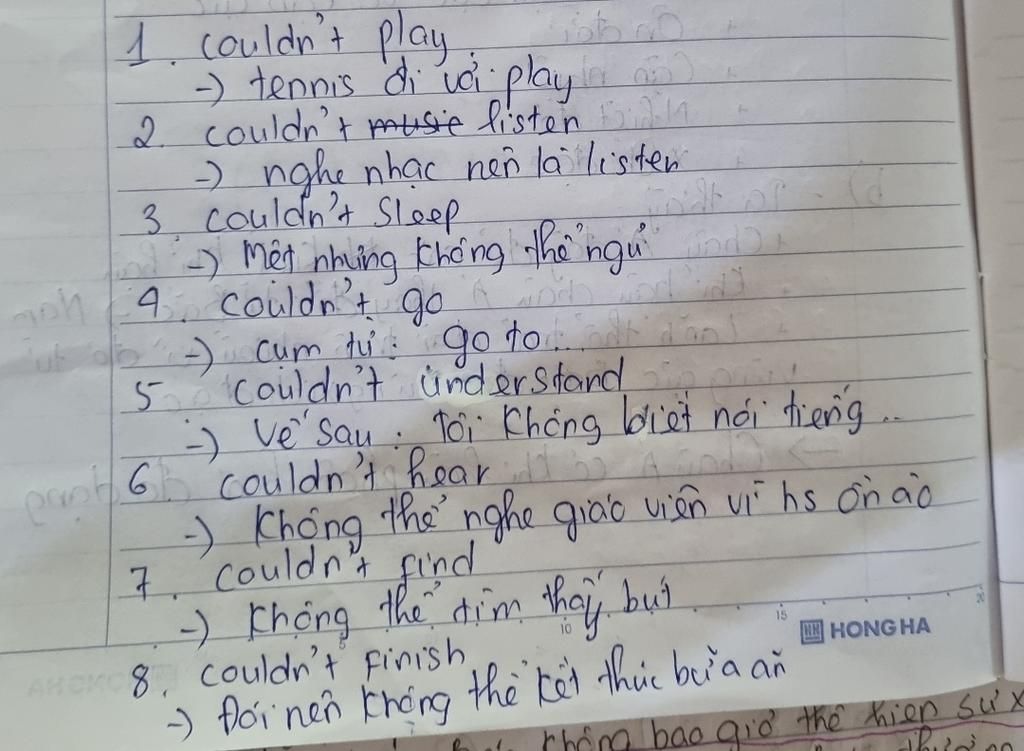 1. couldn't play
-) tennis đi với play
2. couldn't music listen
-) nghe nhạc nên là listen
3. couldn't sleep
-) Mệt nhưng không thể ngủ
4. couldn't go
-) cụm từ: go to...
5 couldn't understand
-) Vế sau: tôi không biết nói tiếng..
6. couldn't hear
-) không thể nghe giáo viên vì hs ồn ào
7. couldn't find
-) không thể tìm thấy bút
10 15 20
HONG HA
8. couldn't finish
-) Đói nên không thể kết thúc bữa ăn
không bao giờ thể hiện sự